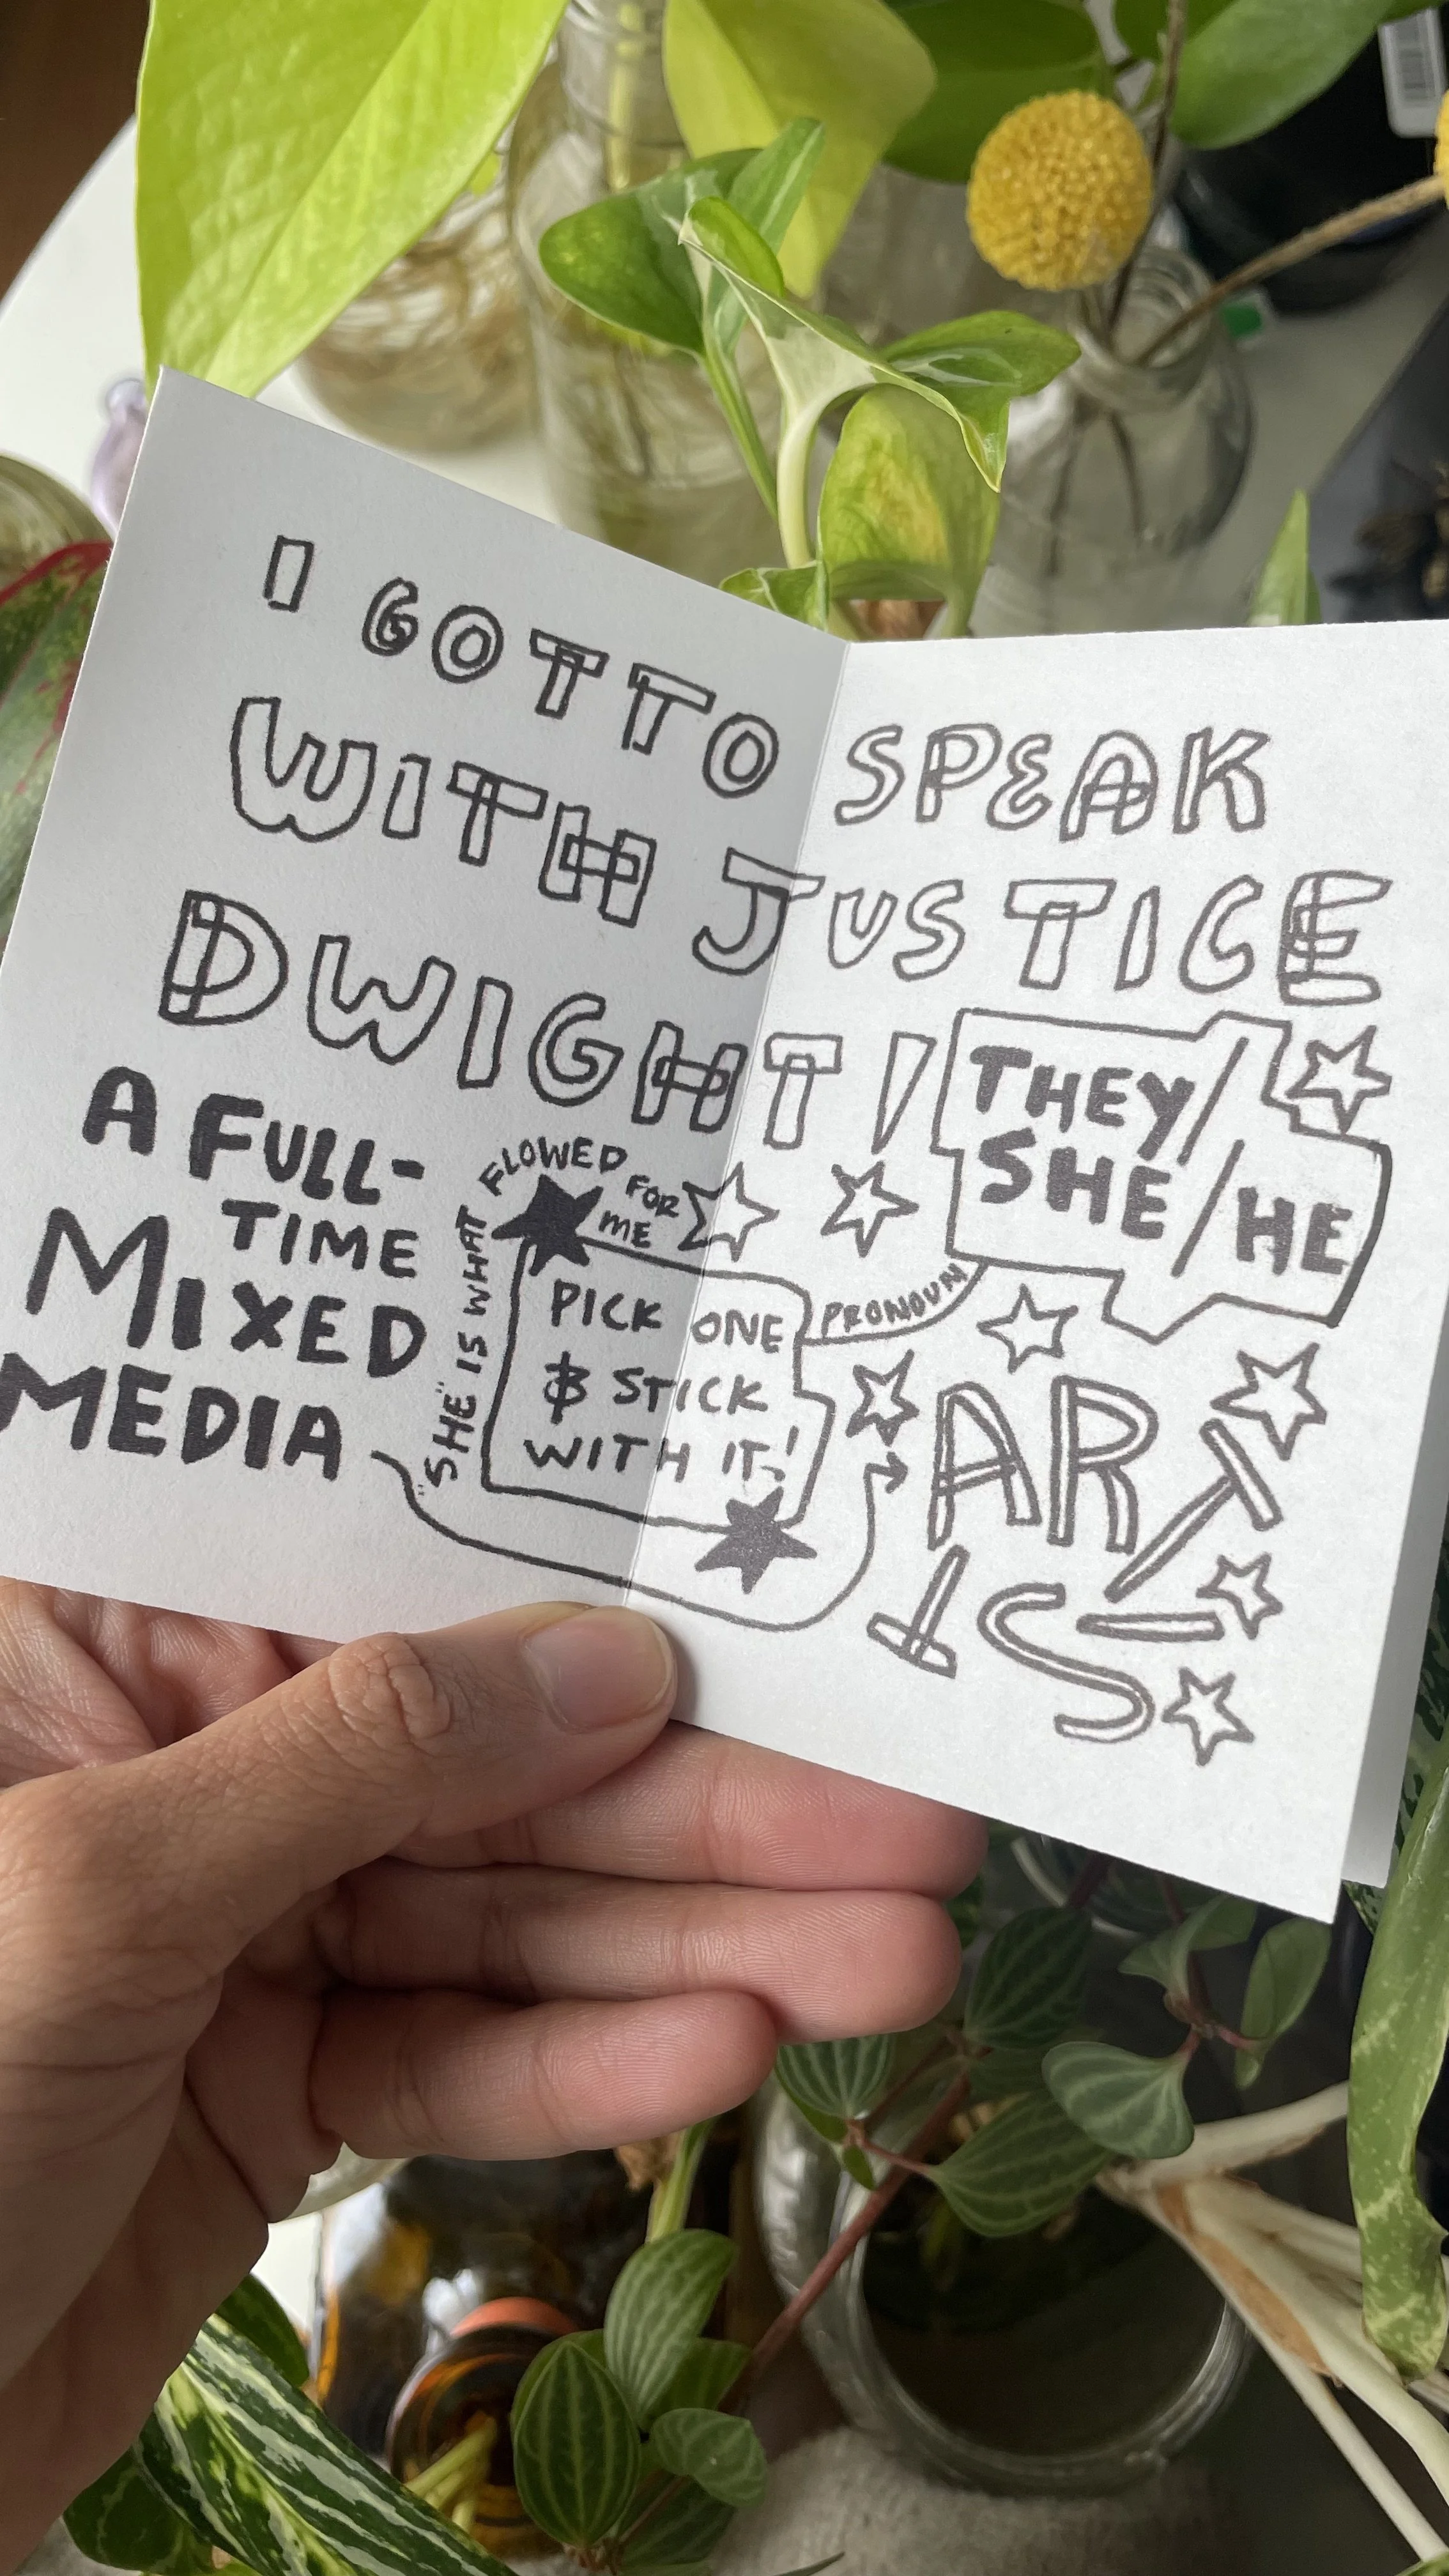 I GOT TO SPEAK
WITH JUSTICE
DWIGHT!
THEY/
SHE/HE
A FULL-
TIME
MIXED
MEDIA
"SHE" IS WHAT FLOWED FOR ME
PICK ONE
& STICK
WITH IT!
PRONOUN
ARTIST